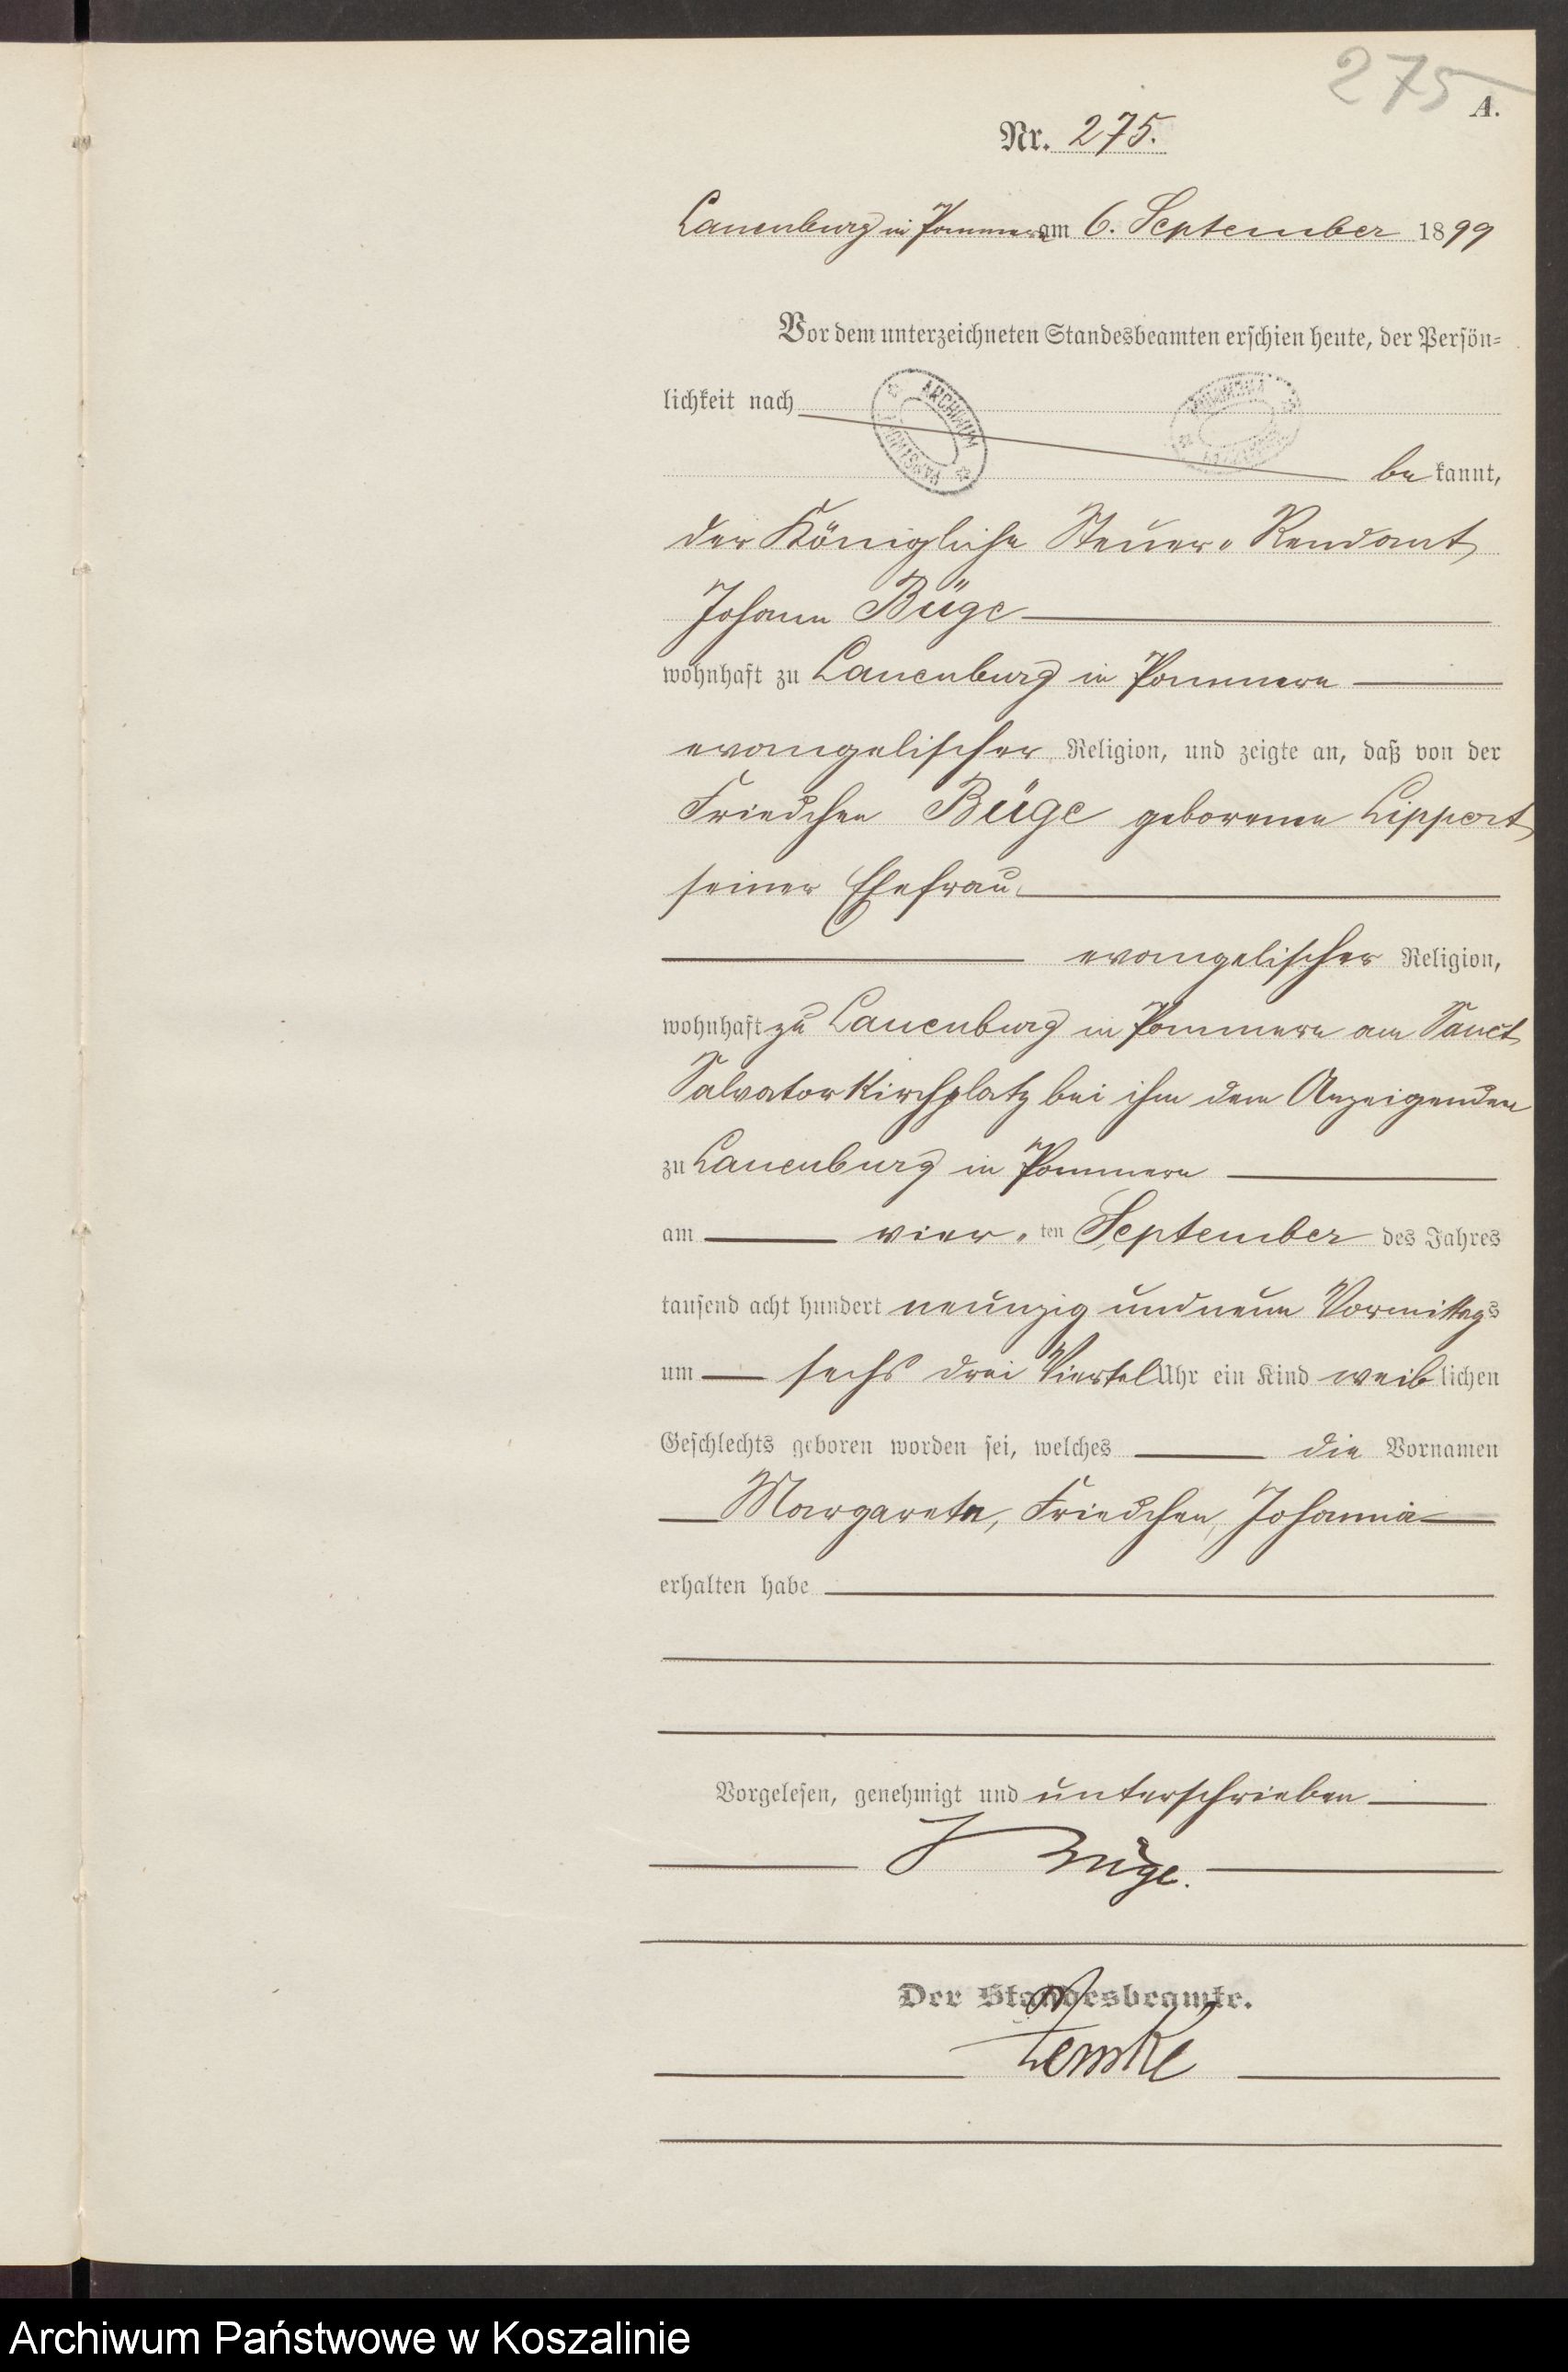 275
A.
Nr. 275.
Lauenburg in Pommern am 6. September 1899
Vor dem unterzeichneten Standesbeamten erschien heute, der Persön-
lichkeit nach
ARCHIWUM
PAŃSTWOWE
be kannt,
der Königliche Steuer-Rendant
Johann Büge
wohnhaft zu Lauenburg in Pommern
evangelischer Religion, und zeigte an, daß von der
Friedchen Büge geborenen Lippert,
seiner Ehefrau
evangelischer Religion,
wohnhaft zu Lauenburg in Pommern am Sanct
Salvator Kirchplatz bei ihm dem Anzeigenden
zu Lauenburg in Pommern
am vier-ten September des Jahres
tausend acht hundert neunzig und neun Vormittags
um sechs drei Viertel Uhr ein Kind weiblichen
Geschlechts geboren worden sei, welches die Vornamen
Margarete, Friedchen, Johanna
erhalten habe
Vorgelesen, genehmigt und unterschrieben
J Büge.
Der Standesbeamte.
Lemke
Archiwum Państwowe w Koszalinie